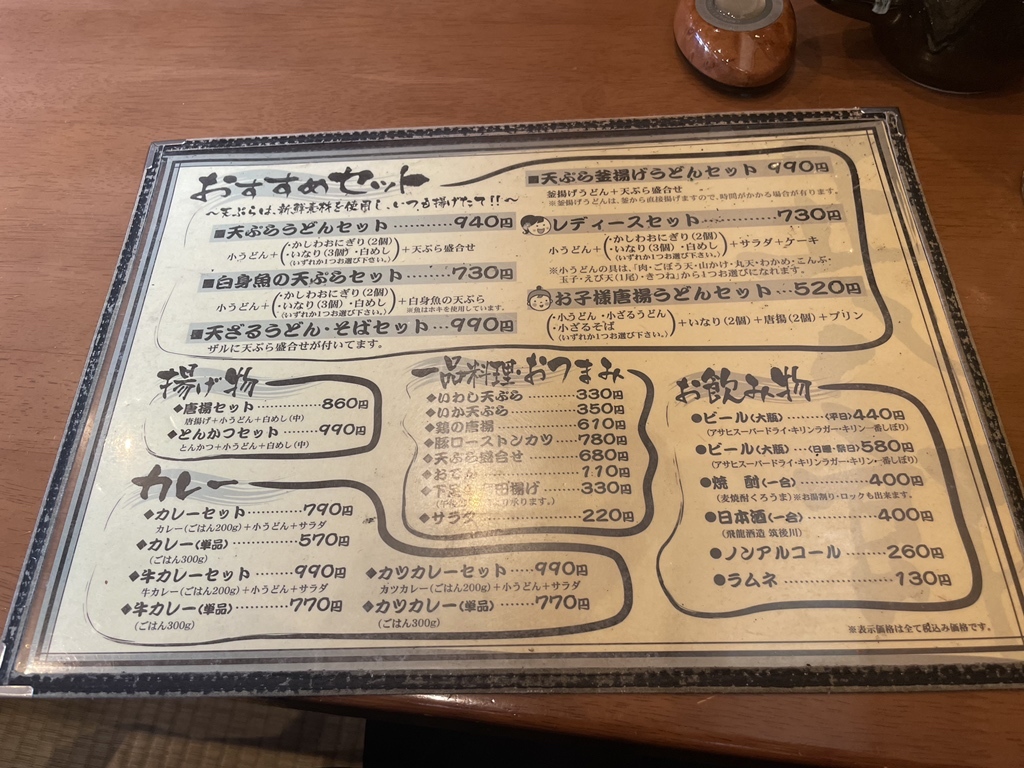 おすすめセット
～天ぷらは、新鮮素材を使用し、いつも揚げたて!!～
■天ぷらうどんセット…………940円
小うどん＋(・かしわおにぎり(2個)
・いなり(3個)・白めし
(いずれか1つお選び下さい。))＋天ぷら盛合せ
■白身魚の天ぷらセット……730円
小うどん＋(・かしわおにぎり(2個)
・いなり(3個)・白めし
(いずれか1つお選び下さい。))＋白身魚の天ぷら
※魚はホキを使用しています。
■天ざるうどん・そばセット…990円
ザルに天ぷら盛合せが付いてます。
■天ぷら釜揚げうどんセット 990円
釜揚げうどん＋天ぷら盛合せ
※釜揚げうどんは、釜から直接揚げますので、時間がかかる場合が有ります。
レディースセット…………730円
小うどん＋(・かしわおにぎり(2個)
・いなり(3個)・白めし
(いずれか1つお選び下さい。))＋サラダ＋ケーキ
※小うどんの具は、「肉・ごぼう天・山かけ・丸天・わかめ・こんぶ・
玉子・えび天(1尾)・きつね」から1つお選びになれます。
お子様唐揚うどんセット…520円
(・小うどん・小ざるうどん
・小ざるそば
(いずれか1つお選び下さい。))＋いなり(2個)＋唐揚(2個)＋プリン
揚げ物
◆唐揚セット…………860円
唐揚げ＋小うどん＋白めし(中)
◆とんかつセット………990円
とんかつ＋小うどん＋白めし(中)
一品料理・おつまみ
◆いわし天ぷら…………330円
◆いか天ぷら……………350円
◆鶏の唐揚………………610円
◆豚ローストンカツ……780円
◆天ぷら盛合せ…………680円
◆おで 110円
◆下 田揚げ………330円
承ります。)
◆サラダ…………………220円
カレー
◆カレーセット…………790円
カレー(ごはん200g)＋小うどん＋サラダ
◆カレー(単品)…………570円
(ごはん300g)
◆牛カレーセット………990円
牛カレー(ごはん200g)＋小うどん＋サラダ
◆牛カレー(単品)………770円
(ごはん300g)
◆カツカレーセット……990円
カツカレー(ごはん200g)＋小うどん＋サラダ
◆カツカレー(単品)……770円
(ごはん300g)
お飲み物
●ビール(大瓶)………(平日)440円
(アサヒスーパードライ・キリンラガー・キリン一番しぼり)
●ビール(大瓶)…(日曜・祭日)580円
(アサヒスーパードライ・キリンラガー・キリン一番しぼり)
●焼 酎(一合)……………400円
(麦焼酎くろうま)※お湯割り・ロックも出来ます。
●日本酒(一合)……………400円
(飛龍酒造 筑後川)
●ノンアルコール…………260円
●ラムネ……………………130円
※表示価格は全て税込み価格です。